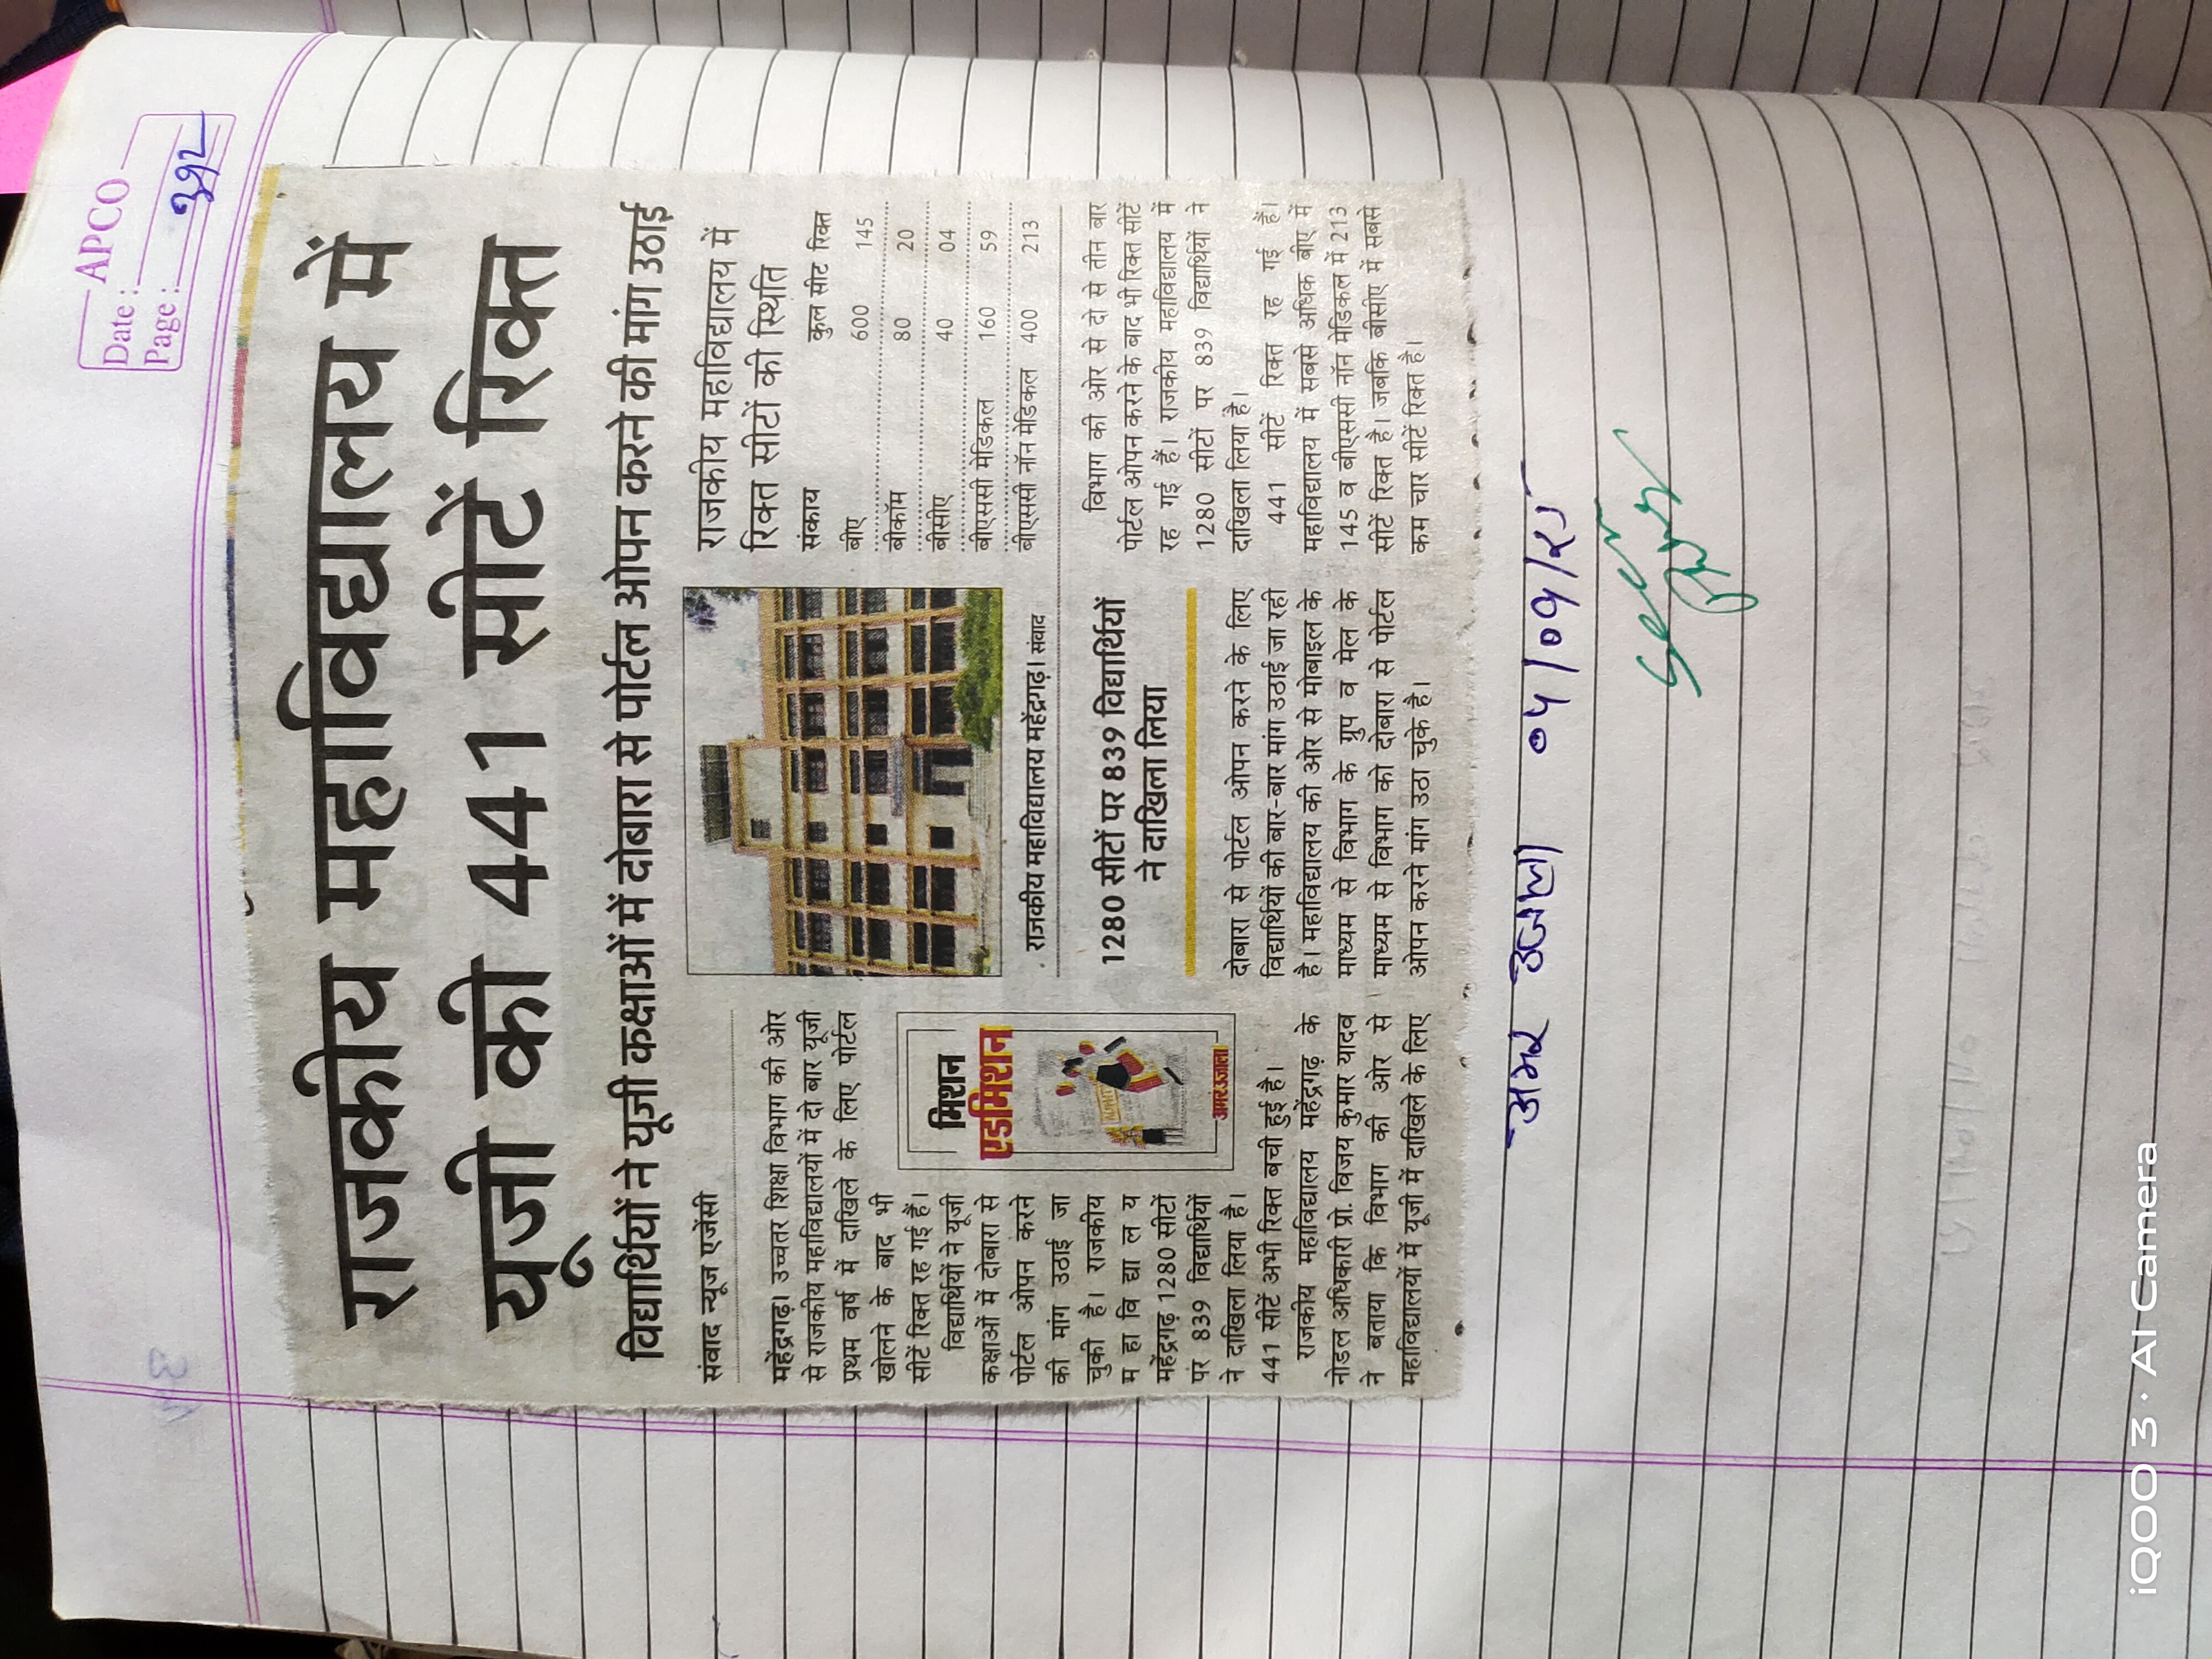 APCO
Date :
Page :
राजकीय महाविद्यालय में
यूजी की 441 सीटें रिक्त
विद्यार्थियों ने यूजी कक्षाओं में दोबारा से पोर्टल ओपन करने की मांग उठाई
संवाद न्यूज एजेंसी
महेंद्रगढ़। उच्चतर शिक्षा विभाग की ओर
से राजकीय महाविद्यालयों में दो बार यूजी
प्रथम वर्ष में दाखिले के लिए पोर्टल
खोलने के बाद भी
सीटें रिक्त रह गई हैं।
विद्यार्थियों ने यूजी
कक्षाओं में दोबारा से
पोर्टल ओपन करने
की मांग उठाई जा
चुकी है। राजकीय
म हा वि द्या ल य
महेंद्रगढ़ 1280 सीटों
पर 839 विद्यार्थियों
ने दाखिला लिया है।
441 सीटें अभी रिक्त बची हुई है।
राजकीय महाविद्यालय महेंद्रगढ़ के
नोडल अधिकारी प्रो. विजय कुमार यादव
ने बताया कि विभाग की ओर से
महाविद्यालयों में यूजी में दाखिले के लिए
मिशन
एडमिशन
अमर उजाला
राजकीय महाविद्यालय महेंद्रगढ़। संवाद
1280 सीटों पर 839 विद्यार्थियों
ने दाखिला लिया
दोबारा से पोर्टल ओपन करने के लिए
विद्यार्थियों की बार-बार मांग उठाई जा रही
है। महाविद्यालय की ओर से मोबाइल के
माध्यम से विभाग के ग्रुप व मेल के
माध्यम से विभाग को दोबारा से पोर्टल
ओपन करने मांग उठा चुके है।
राजकीय महाविद्यालय में
रिक्त सीटों की स्थिति
संकाय कुल सीट रिक्त
बीए 600 145
बीकॉम 80 20
बीसीए 40 04
बीएससी मेडिकल 160 59
बीएससी नॉन मेडिकल 400 213
विभाग की ओर से दो से तीन बार
पोर्टल ओपन करने के बाद भी रिक्त सीटें
रह गई हैं। राजकीय महाविद्यालय में
1280 सीटों पर 839 विद्यार्थियों ने
दाखिला लिया है।
441 सीटें रिक्त रह गई हैं।
महाविद्यालय में सबसे अधिक बीए में
145 व बीएससी नॉन मेडिकल में 213
सीटें रिक्त है। जबकि बीसीए में सबसे
कम चार सीटें रिक्त है।
अमर उजाला ०५/०९/२५
Seen
iQOO 3 · AI Camera